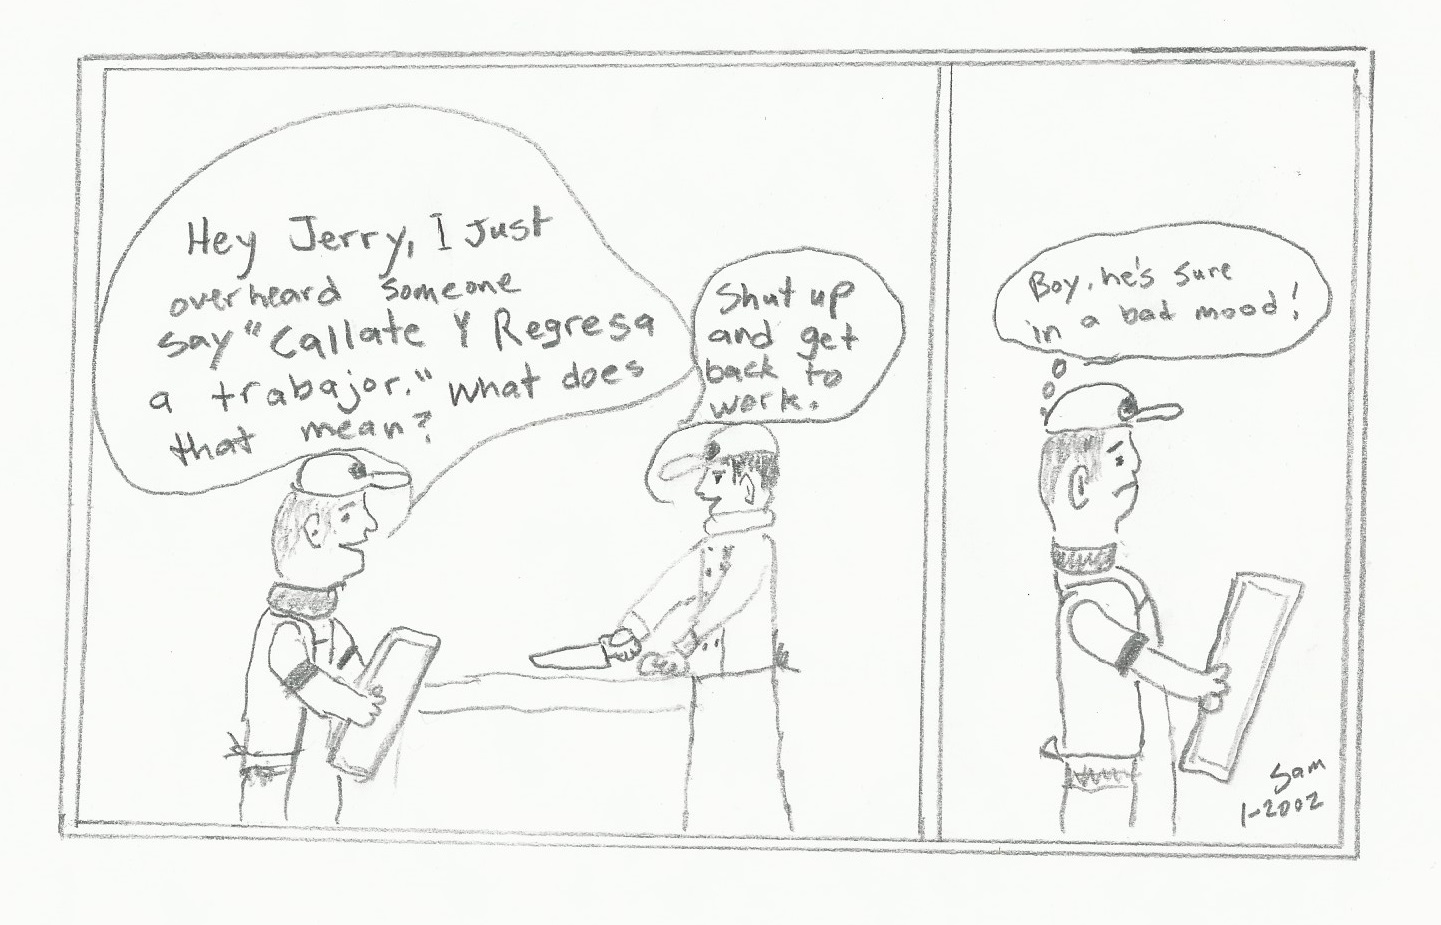 Hey Jerry, I Just
overheard someone
say "Callate Y Regresa
a trabajor." What does
that mean?
Shut up
and get
back to
work.
Boy, he's sure
in a bad mood!
Sam
1-2002